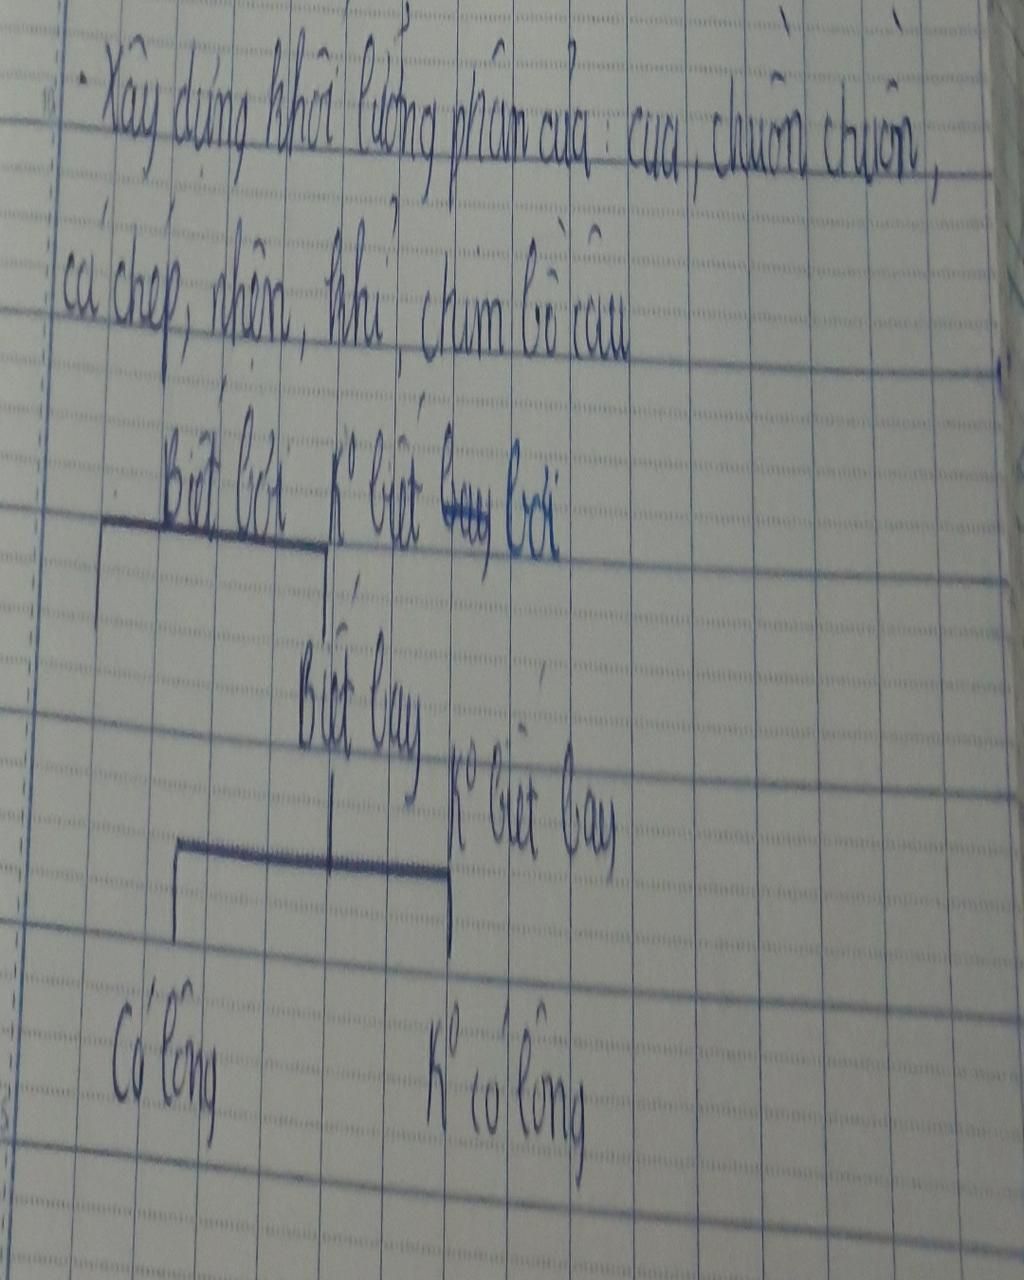 · Xây dựng khối lưỡng phân của: cua, chuồn chuồn,
cá chép, nhện, khỉ, chim bồ câu
Biết bơi K° biết bơi
Biết bay
K° biết bay
Có lông K° có lông